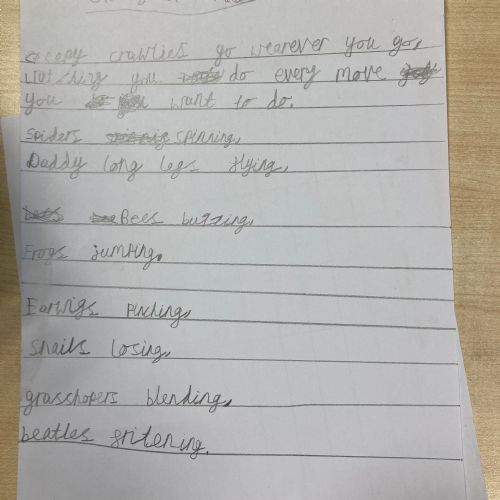 creepy crawlies go wearever you go,
watching you do every move
you want to do.
Spiders spinning,
Daddy long legs flying,
Bees buzzing,
Frogs jumping,
Earwigs pinching,
Snails losing,
grasshopers blending,
beatles fritening.